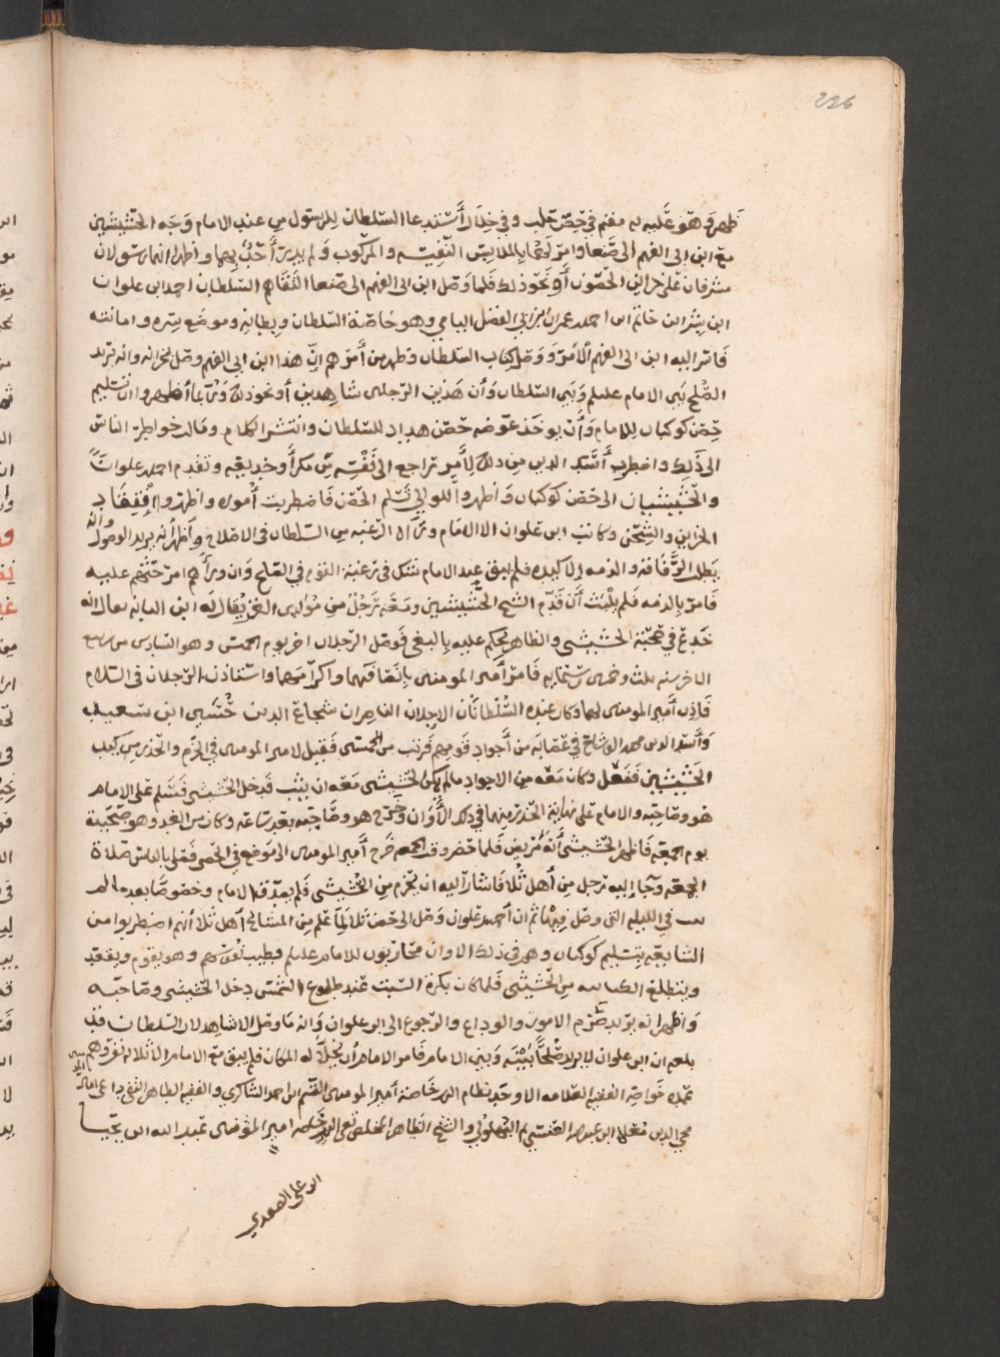 226
ظهره وهو عليه له مغنم في حصن حلب وفي خلال أستدعا السلطان للرسول من عند الامام وجه الحشيشيين
مع ابن ابى الفهم الى صنعا وامر لهما بالملابس النفيسه والمركوب ولم يدر أحد بهما واظهر انهما رسولان
مشرفان على خزاين الحصون أو نحو ذلك فلما وصل ابن ابى الفهم الى صنعا التقاهم السلطان احمد ابن علوان
ابن بشر ابن حاتم ابن احمد عمران ابن ابى الفضل اليامي وهو خاصة السلطان وبطانه وموضع سره وامانته
فاسر اليه ابن ابى الفهم الامر ووصل كتاب السلطان وظهر من أمرهم ان هذا ابن ابى الفهم وصل لخزانه وانه يريد
الصلح بين الامام عليلم وبين السلطان وأن هذين الرجلين شاهدين أو نحو ذلك وربما أظهروا ان تسليم
حصن كوكبان للامام وأن يوخذ عوضه حصن هداد للسلطان وانتشر الكلام ومالت خواطر الناس
الى ذلك واضطرب أسد الدين من ذلك لأمر تراجع الى نفسه من مكر أو خديعه وتقدم احمد علوان
والحشيشيان الى حصن كوكبان وأظهروا للوالي تسلم الحصن فاضطربت أموره واظهروا افتقاد
الخزاين والشحن وكاتب ابن علوان الى الامام وراه الرغبه من السلطان في الاصلاح وأظهر أنه يريد الوصول وانه
يطلب الرفاقه والذمه الى كيده فلم يبق عند الامام شك في رغبة القوم في الصلح وان وراهم امر حثهم عليه
فامر بالذمه فلم يلبث أن قدم الشيخ الحشيشيين ومعه رجل من مولدي الغز يقال له ابن العانه يقال انه
خدع في صحبة الحشيشي والظاهر يحكم عليه بالبغى فوصل الرجلان اخر يوم الخميس وهو السادس من ربيع
الاخر سنه ثلث وخمسين وستمايه فامر أمير المومنين بانصافهما واكرامهما واستاذن الرجلان في السلام
فاذن أمير المومنين لهما وكان عنده السلطانان الاجلان الناهران شجاع الدين حسين ابن سعيد
وأسد الدين محمد الوشاح في عصابة من أجواد قومهم فرتب من الحمسي فقيل لامير المومنين في الحزم والحذر من كيد
الحشيشين ففعل وكان معه من الاجواد ما لم يكن الحشيشي معه ان يثب فدخل الحشيشي فسلم على الامام
هو وصاحبه والامام على نهاية الحذر منهما في ذلك الأوان وخرج هو وصاحبه بعد ساعه وكان من الغد وهو صحبيته
يوم الجمعه فاظهر الحشيشي أنه مريض فلما حضر وقت الجمعه خرج أمير المومنين الى موضع في الحصن فصلى بالناس صلاة
الجمعه وجا إليه رجل من أهل ثلا فاشار اليه ان يحزم من الحشيشي فلم يصدقه الامام وخصوصا بعد ما لم
في الليله التى وصل فيها ثم ان أحمد علوان وصل الى حصن ثلا لما علم من المشايخ أهل ثلا أنهم اضطربوا من
الشايعه بتسليم كوكبان وهم في ذلك الاوان محاربون للامام عليلم فطيب نفوسهم وهو يقوم ويقعد
ويتطلع من الحشيشي فلما كان بكرة السبت عند طلوع الشمس دخل الحشيشي وصاحبه
وأظهر انه يريد صرم الامور والوداع والرجوع الى ابن علوان وانه ما وصل الا شاهد لان السلطان قد
بلغه ان ابن علوان لا يريد صلحاً بينه وبين الامام فامر الامام أن يخلا له المكان فلم يبق مع الامام الا ثلاثه نفر وهم
عمدة خواصه الفقيه العلامه الاوحد نظام الدين خاصة أمير المومنين القسم ابن احمد الشاكري والفقيه الطاهر التقى داعى امام
محي الدين ابن عبدالله العنسي ثم البهلولي والشيخ الطاهر المخلص تقي الدين خاصه امير المومنين عبد الله ابن يحيا
ابن على الصعدي